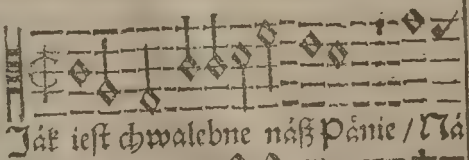 Ják iest chwalebne náß Pánie / Ná